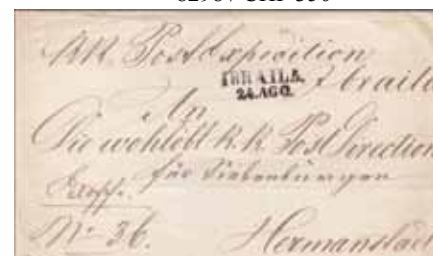 KK Postexpedition
IBRAILA.
24. AGO.
Ibraila
An
Die wohllöbl k.k. Post Direction
für Siebenbürgen
No 36.
Hermanstadt